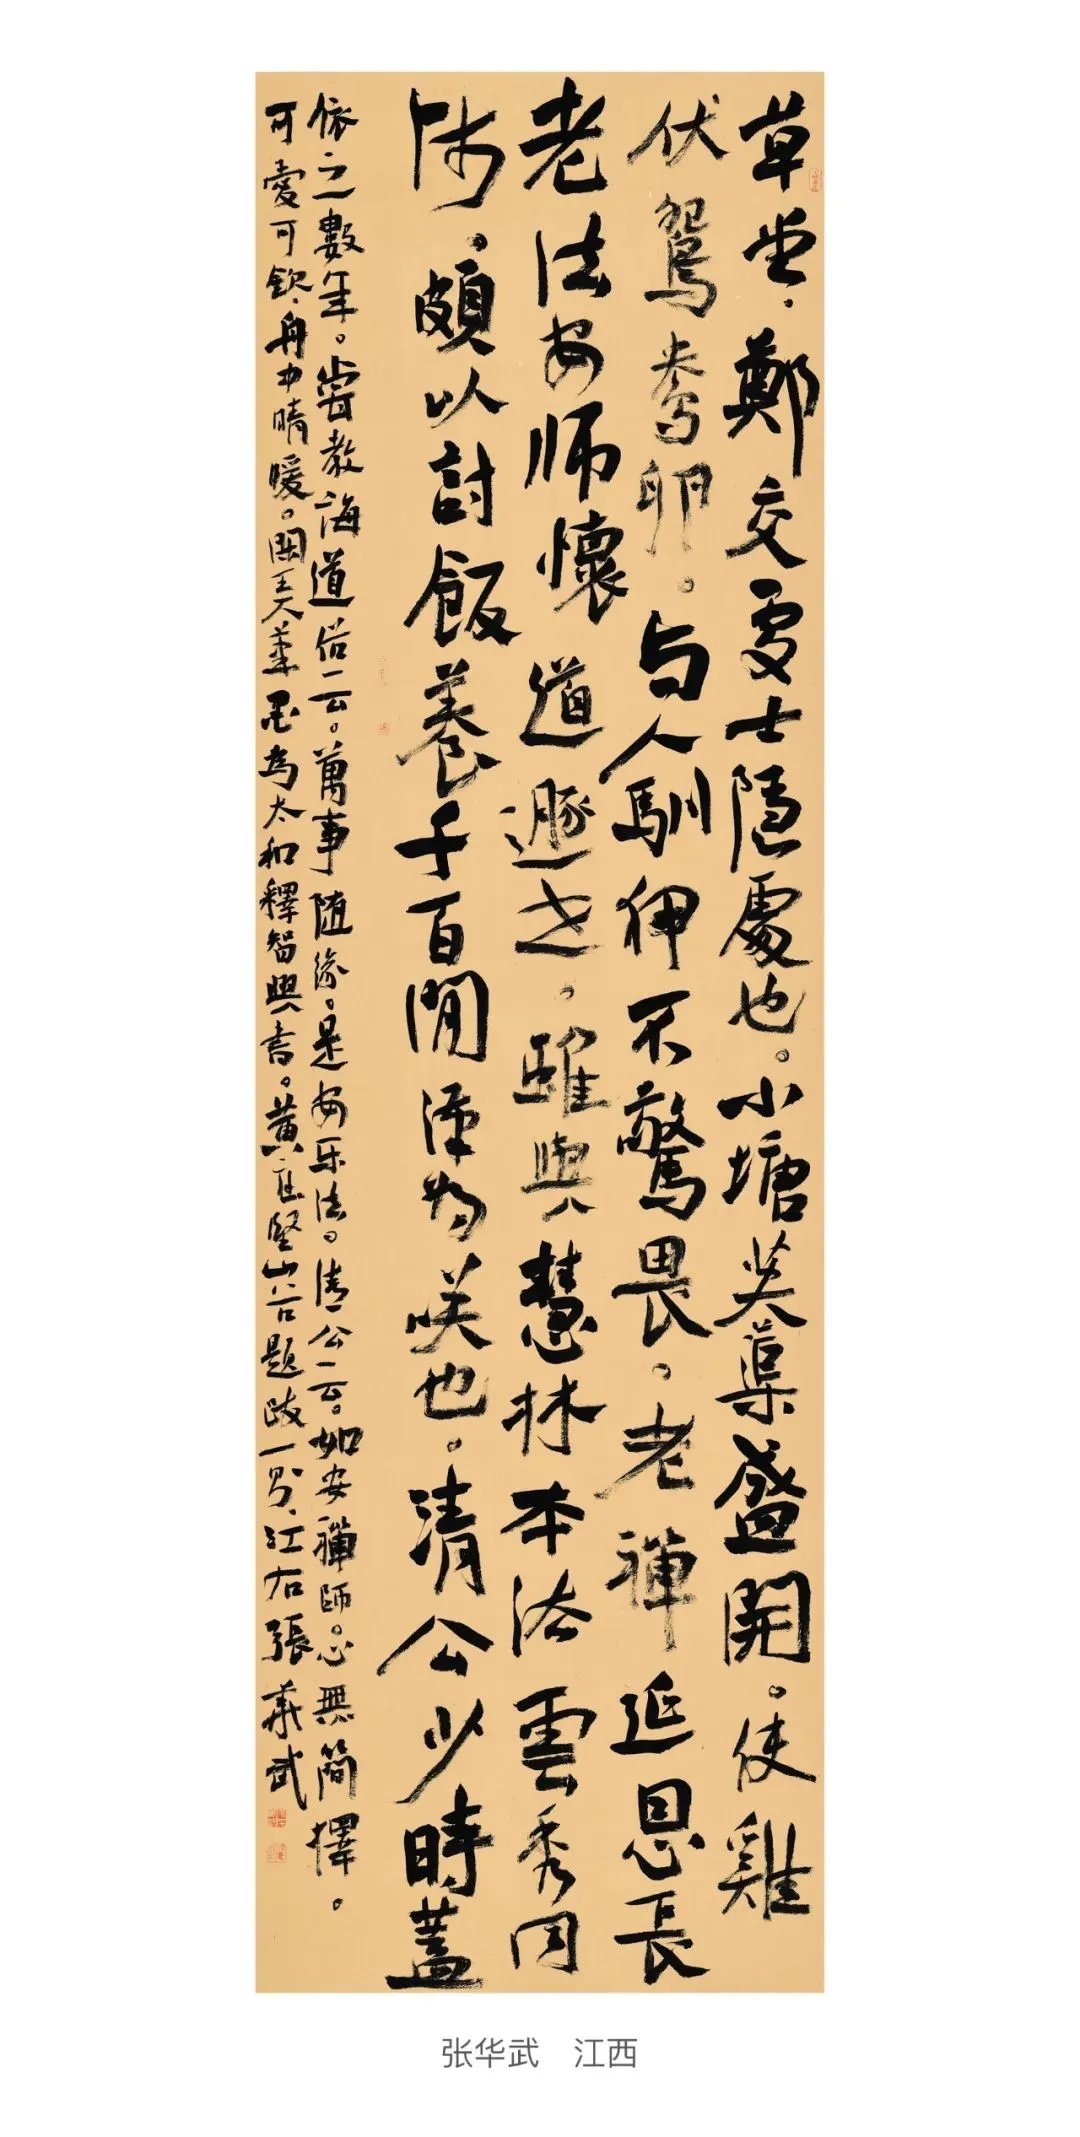 草堂、鄭交処士隱處也。小塘芙蕖盛開。使雞
伏鴛鴦卵。与人馴狎不驚畏。老禪延恩長
老法安师懷道遯世。雖與慧林本法雲秀同
师、頗以討飯養千百閒漢为咲也。清公少時蓋
依之數年。嘗教誨道俗云。萬事随緣、是安乐法。清公云。如安禪師。心無簡擇。
可愛可欽、舟中晴暖。閑弄筆墨為太和釋智興書。黃庭堅山谷題跋一則、江右張華武
张华武 江西